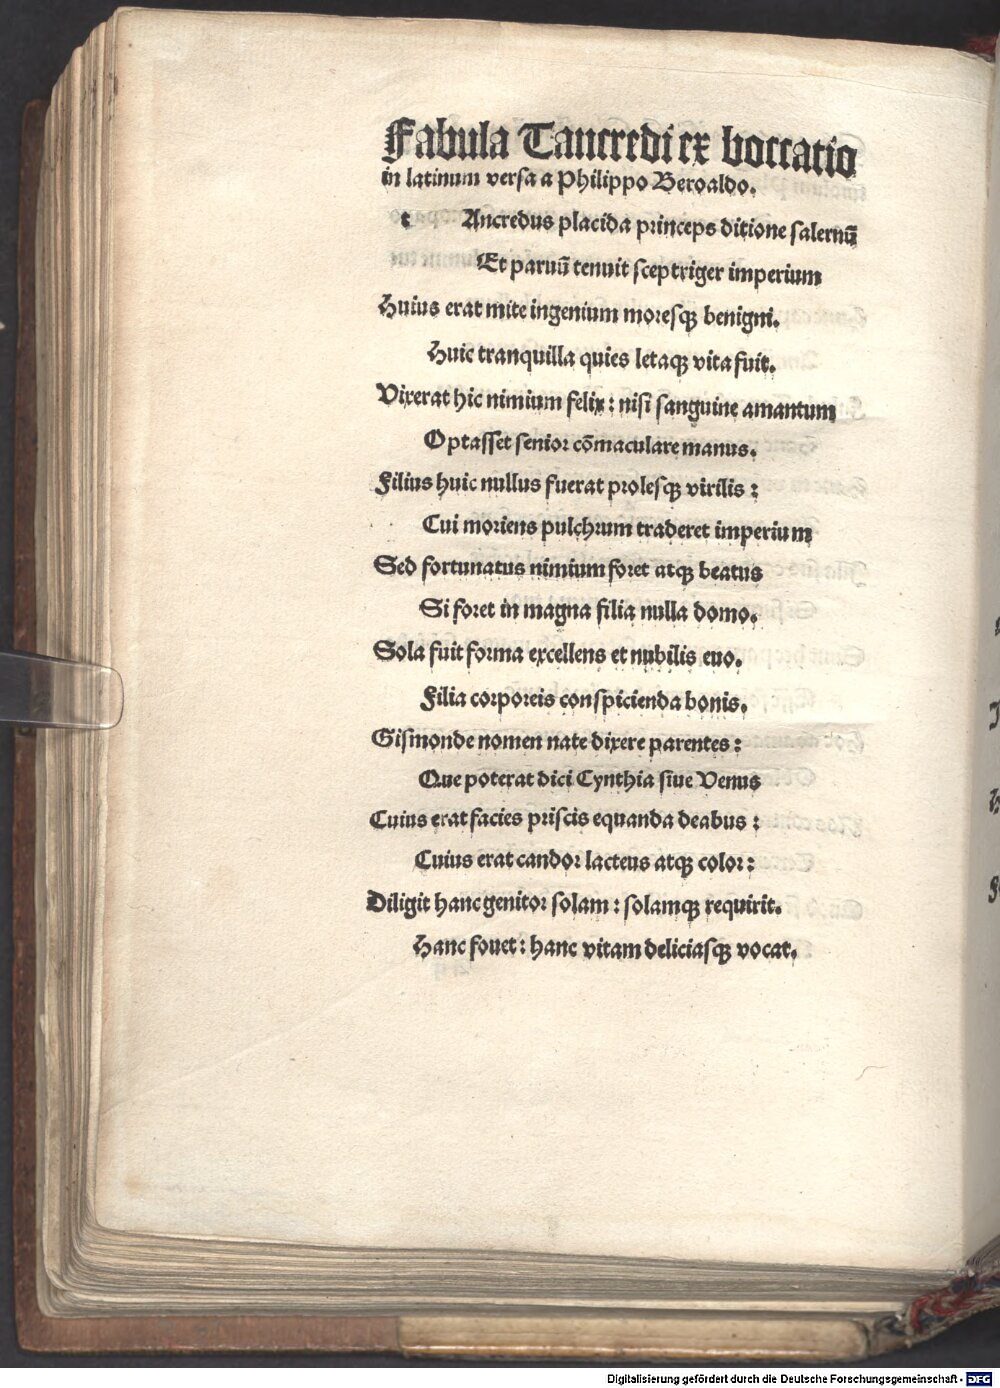 Fabula Tancredi ex boccatio
in latinum versa a Philippo Beroaldo.
t Ancredus placida princeps ditione salernū
Et paruū tenuit sceptriger imperium
Huius erat mite ingenium moresqꝫ benigni.
Huic tranquilla quies letaqꝫ vita fuit.
Vixerat hic nimium felix: nisi sanguine amantum
Optasset senior cōmaculare manus.
Filius huic nullus fuerat prolesqꝫ virilis:
Cui moriens pulchrum traderet imperium
Sed fortunatus nimium foret atqꝫ beatus
Si foret in magna filia nulla domo.
Sola fuit forma excellens et nubilis euo.
Filia corporeis conspicienda bonis.
Gismonde nomen nate dixere parentes:
Que poterat dici Cynthia siue Venus
Cuius erat facies priscis equanda deabus:
Cuius erat candor lacteus atqꝫ color:
Diligit hanc genitor solam: solamqꝫ requirit.
Hanc fouet: hanc vitam deliciasqꝫ vocat.
Digitalisierung gefördert durch die Deutsche Forschungsgemeinschaft - DFG